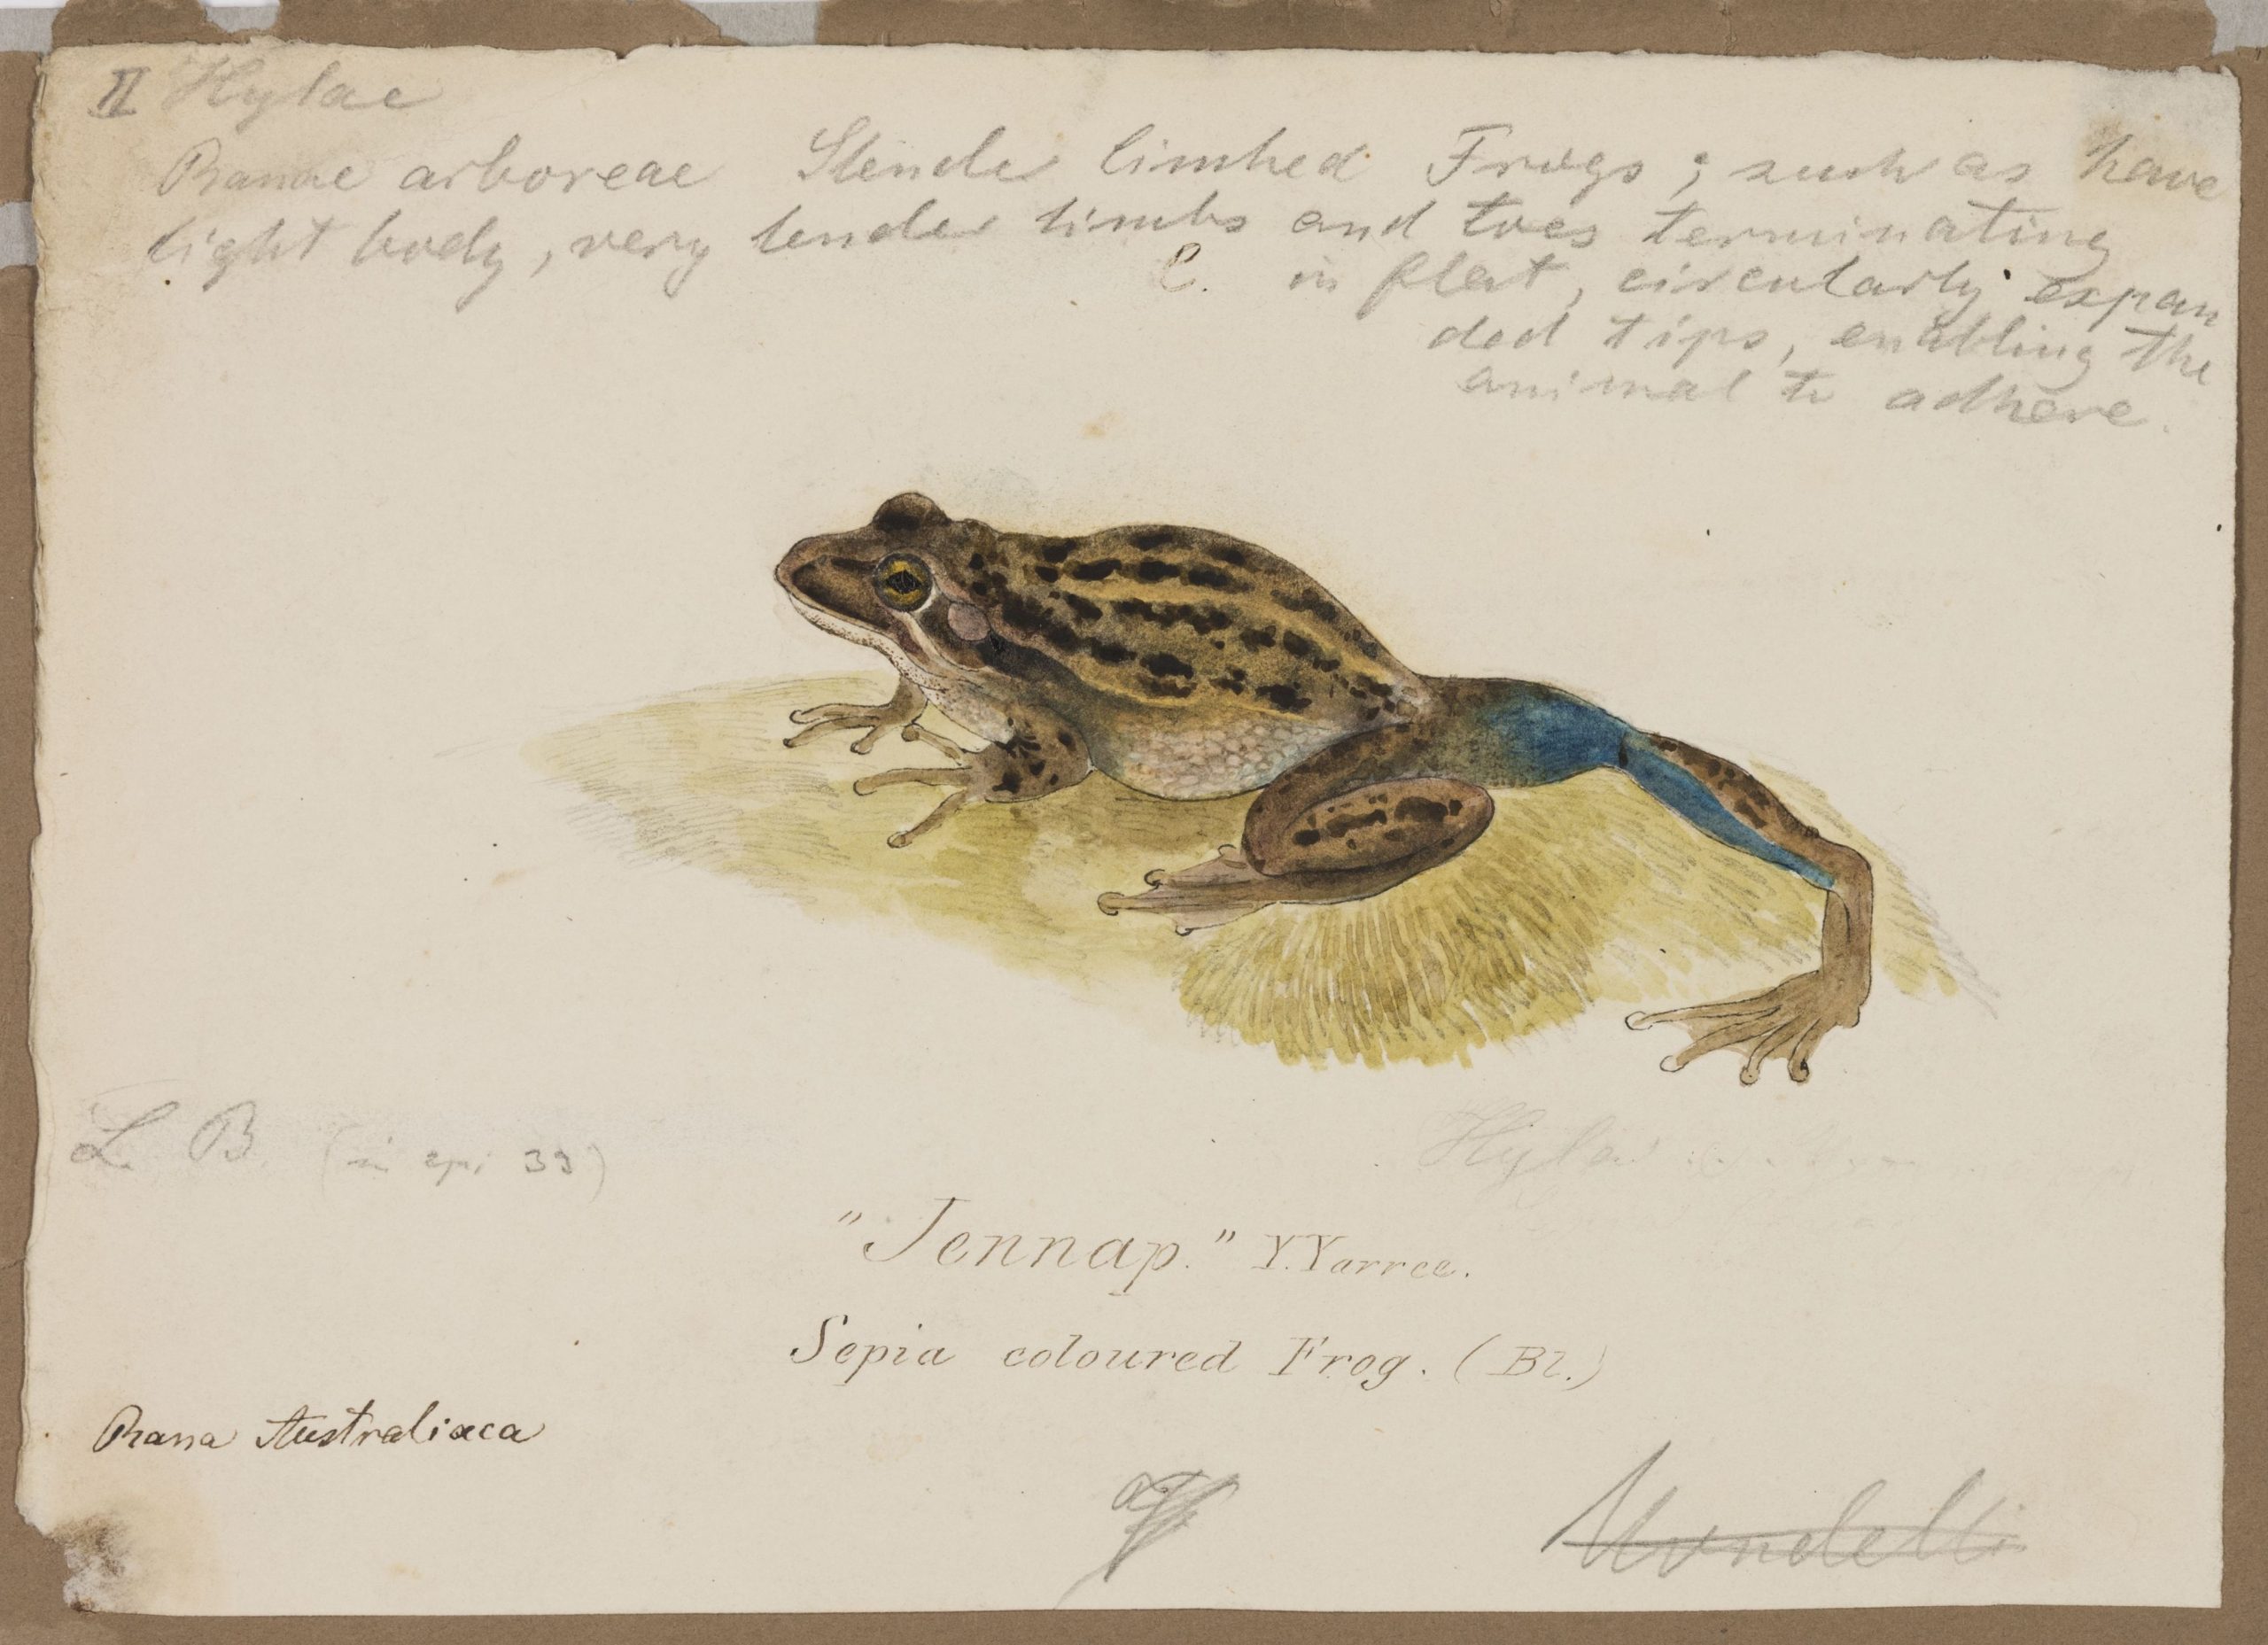 II Hylae
Ranae arboreae Slender limbed Frogs; such as have
light body, very tender limbs and toes terminating
C. in flat, circularly expan
ded tips, enabling the
animal to adhere.
L. B. (in epi 33)
Hyla
"Jennap." Y.Yarree.
Sepia coloured Frog. (Bl.)
Rana Australiaca